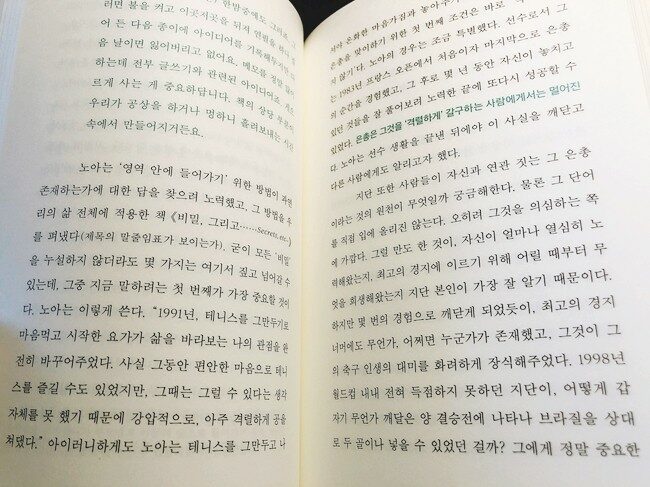 러면 불을 켜고 이곳저곳을 뒤져 연필을
어 든 다음 종이에 아이디어를 기록해두지
음 날이면 잃어버리고 없어요. 메모를 정말 많이
하는데 전부 글쓰기와 관련된 아이디어죠.
르게 사는 게 중요하답니다. 책의 상당 부분이
우리가 공상을 하거나 멍하니 흘려보내는 시간
속에서 만들어지거든요.
노아는 ‘영역 안에 들어가기’ 위한 방법이 과연
존재하는가에 대한 답을 찾으려 노력했고, 그 방법을 우
리의 삶 전체에 적용한 책 《비밀, 그리고……Secrets, etc…》
를 펴냈다(제목의 말줄임표가 보이는가). 굳이 모든 ‘비밀’
을 누설하지 않더라도 몇 가지는 여기서 짚고 넘어갈 수
있는데, 그중 지금 말하려는 첫 번째가 가장 중요할 것이
다. 노아는 이렇게 쓴다. “1991년, 테니스를 그만두기로
마음먹고 시작한 요가가 삶을 바라보는 나의 관점을 완
전히 바꾸어주었다. 사실 그동안 편안한 마음으로 테니
스를 즐길 수도 있었지만, 그때는 그럴 수 있다는 생각
자체를 못 했기 때문에 강압적으로, 아주 격렬하게 공을
쳐댔다.” 아이러니하게도 노아는 테니스를 그만두고 나
서야 온화한 마음가짐과
은총을 맞이하기 위한 첫 번째 조건은 바로
지 않기’다. 노아의 경우는 조금 특별했다. 선수로서 그
는 1983년 프랑스 오픈에서 처음이자 마지막으로 은총
의 순간을 경험했고, 그 후로 몇 년 동안 자신이 놓치고
있던 것들을 잘 풀어보려 노력한 끝에 또다시 성공할 수
있었다. 은총은 그것을 ‘격렬하게’ 갈구하는 사람에게서는 멀어진
다. 노아는 선수 생활을 끝낸 뒤에야 이 사실을 깨닫고
다른 사람에게도 알리고자 했다.
지단 또한 사람들이 자신과 연관 짓는 그 은총
이라는 것의 원천이 무엇일까 궁금해한다. 물론 그 단어
를 직접 입에 올리진 않는다. 오히려 그것을 의심하는 쪽
에 가깝다. 그럴 만도 한 것이, 자신이 얼마나 열심히 노
력해왔는지, 최고의 경지에 이르기 위해 어릴 때부터 무
엇을 희생해왔는지 지단 본인이 가장 잘 알기 때문이다.
하지만 몇 번의 경험으로 깨닫게 되었듯이, 최고의 경지
너머에도 무언가, 어쩌면 누군가가 존재했고, 그것이 그
의 축구 인생의 대미를 화려하게 장식해주었다. 1998년
월드컵 내내 전혀 득점하지 못하던 지단이, 어떻게 갑
자기 무언가 깨달은 양 결승전에 나타나 브라질을 상대
로 두 골이나 넣을 수 있었던 걸까? 그에게 정말 중요한